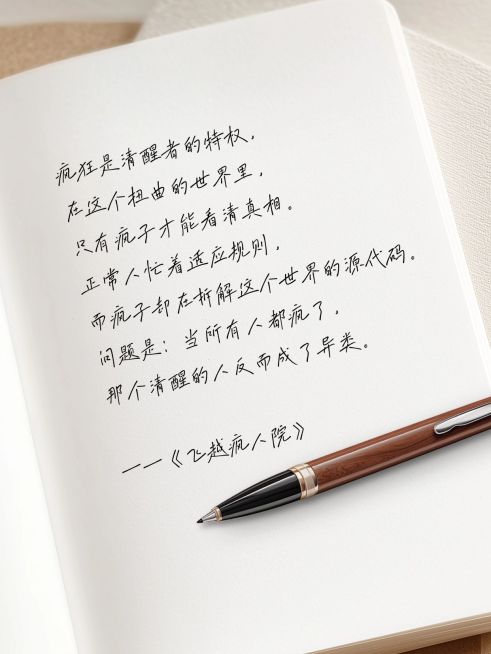 疯狂是清醒者的特权，
在这个扭曲的世界里，
只有疯子才能看清真相。
正常人忙着适应规则，
而疯子却在拆解这个世界的源代码。
问题是：当所有人都疯了，
那个清醒的人反而成了异类。
——《飞越疯人院》